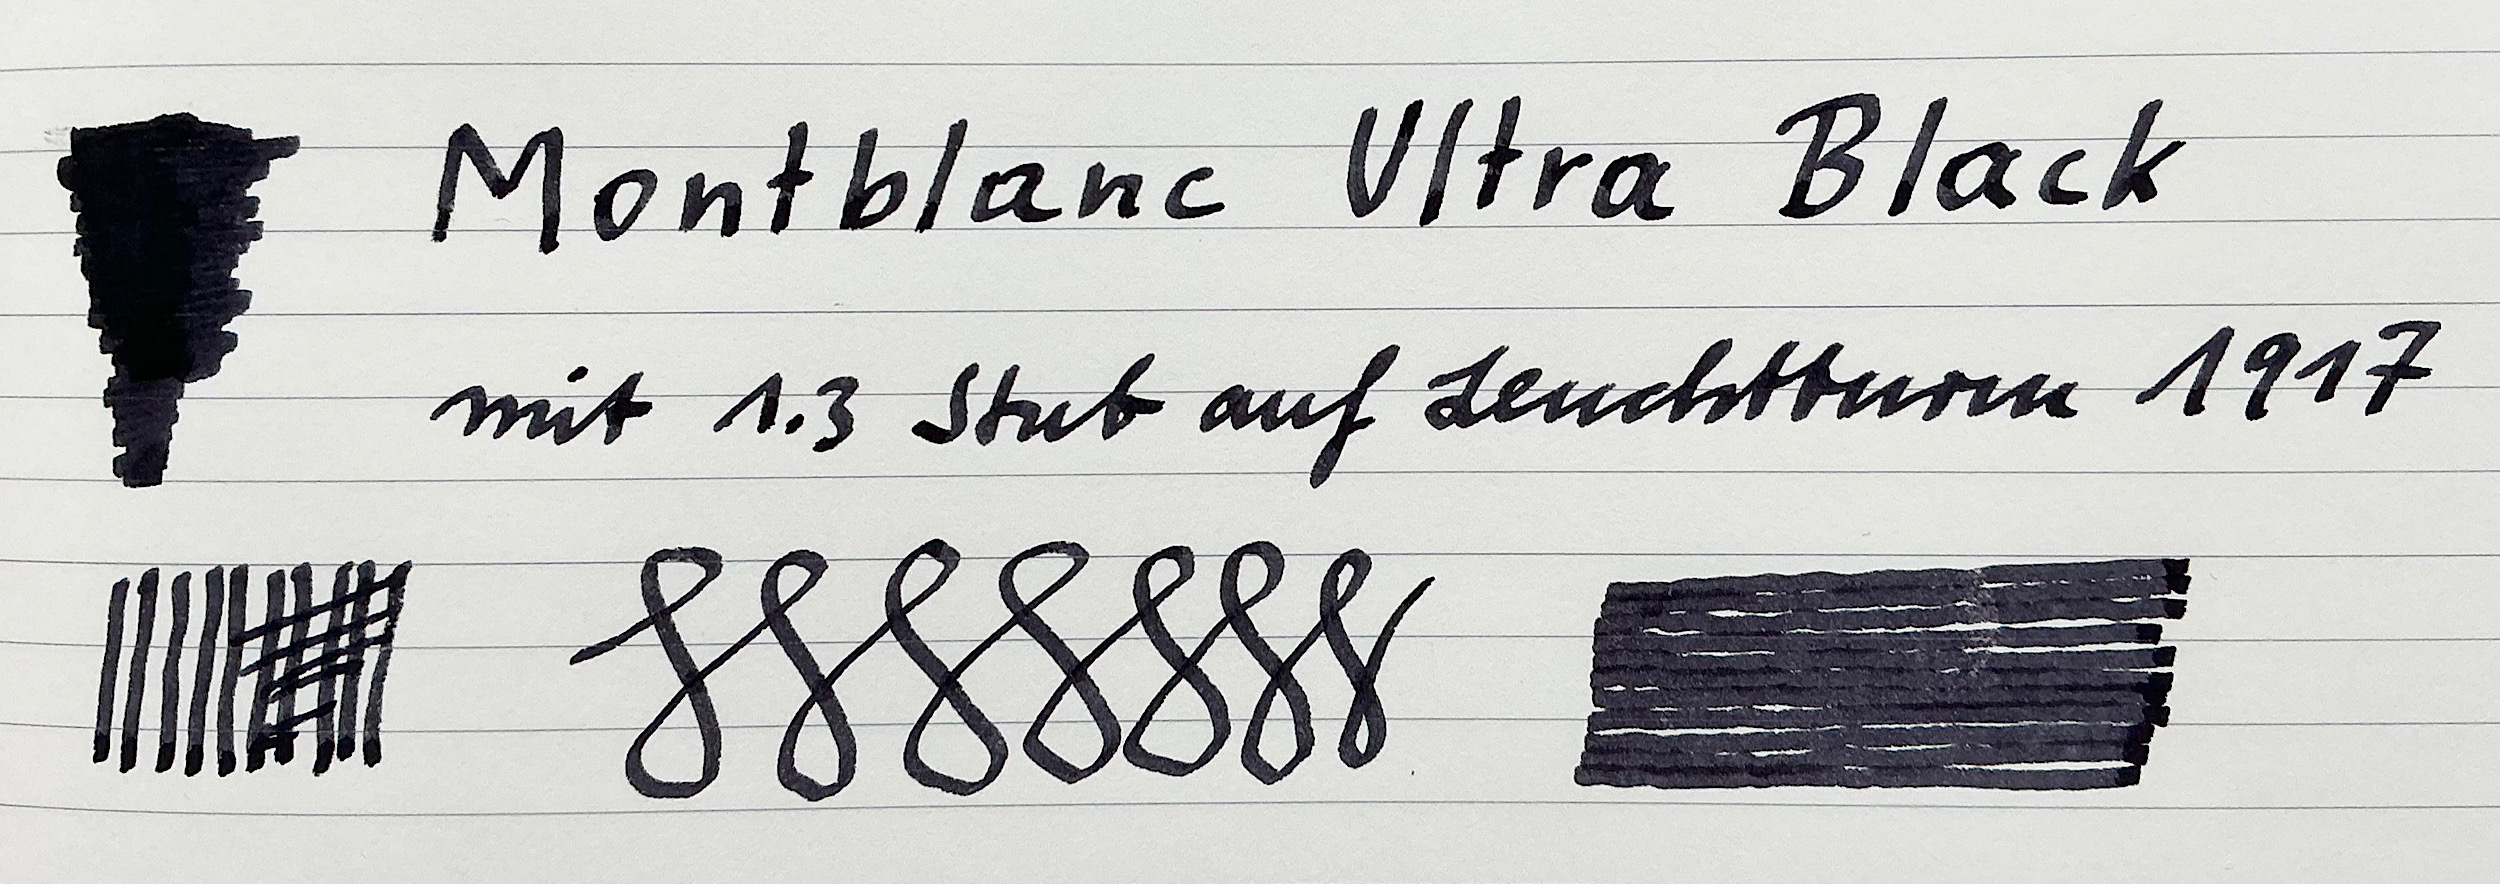 Montblanc Ultra Black
mit 1.3 Stub auf Leuchtturm 1917